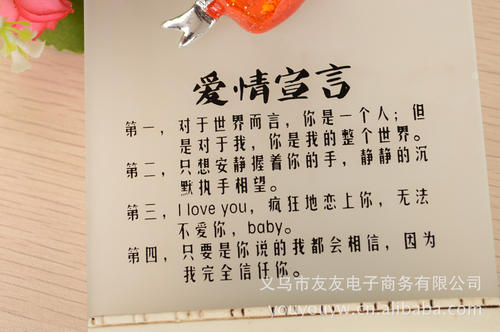 爱情宣言
第一，对于世界而言，你是一个人；但
是对于我，你是我的整个世界。
第二，只想安静握着你的手，静静的沉
默执手相望。
第三，I love you，疯狂地恋上你，无法
不爱你，baby。
第四，只要是你说的我都会相信，因为
我完全信任你。
义乌市友友电子商务有限公司
yoeyouyw.cn.alibaba.com